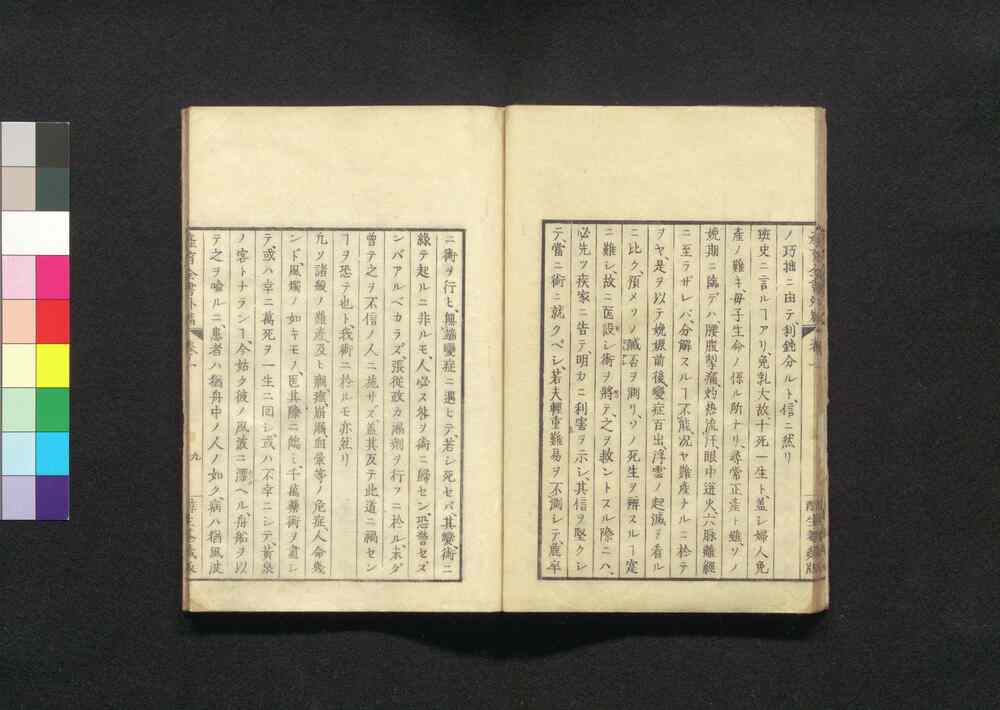 ノ巧拙ニ由テ利鈍分ルト、信ニ然リ
班史ニ言ルヿアリ、免乳大故十死一生ト、蓋シ婦人免
産ノ難キ、母子生命ノ係ル所ナリ、尋常正産ト雖、ソノ
娩期ニ臨デハ、腰腹掣痛、灼熱流汗、眼中迸火、六脉離經
ニ至ラザレバ、分解スルヿ不能、况ヤ難産ナルニ於テ
ヲヤ、是ヲ以テ娩娠前後、變症百出、浮雲ノ起滅ヲ看ル
ニ比ク、預メソノ誠否ヲ測リ、ソノ死生ヲ辨スルヿ寔
ニ難シ、故ニ医設シ術ヲ將テ之ヲ救ントスル際ニハ、
必先ツ疾家ニ告テ、明カニ利害ヲ示シ、其信ヲ堅クシ
テ、當ニ術ニ就クベシ、若夫輕重難易ヲ不測シテ、麁卒
ニ術ヲ行ヒ、無端變症ニ遇ヒテ、若シ死セバ、其變、術ニ
縁テ起ルニ非ルモ、人必ス咎ヲ術ニ歸セン、恐警セズ
ンバアルベカラズ、張從政カ漏劑ヲ行フニ於ル、未ダ
曾テ之ヲ不信ノ人ニ施サズ、蓋其反テ此道ニ禍セン
ヿヲ恐テ也ト、我術ニ於ルモ亦然リ
凡ソ諸般ノ難産、及ヒ癇、崩漏血暈等ノ危症、人命幾
ンド、風燭ノ如キモノ、医其際ニ臨ミ、千萬藥術ヲ盡シ
テ、或ハ幸ニ萬死ヲ一生ニ回シ或ハ不幸ニシテ、黄泉
ノ客トナラシム、今姑ク彼ノ風波ニ漂ヘル、舟船ヲ以
テ之ヲ喩ルニ、患者ハ猶舟中ノ人ノ如ク、病ハ猶風波
産育全書外篇 卷一 九